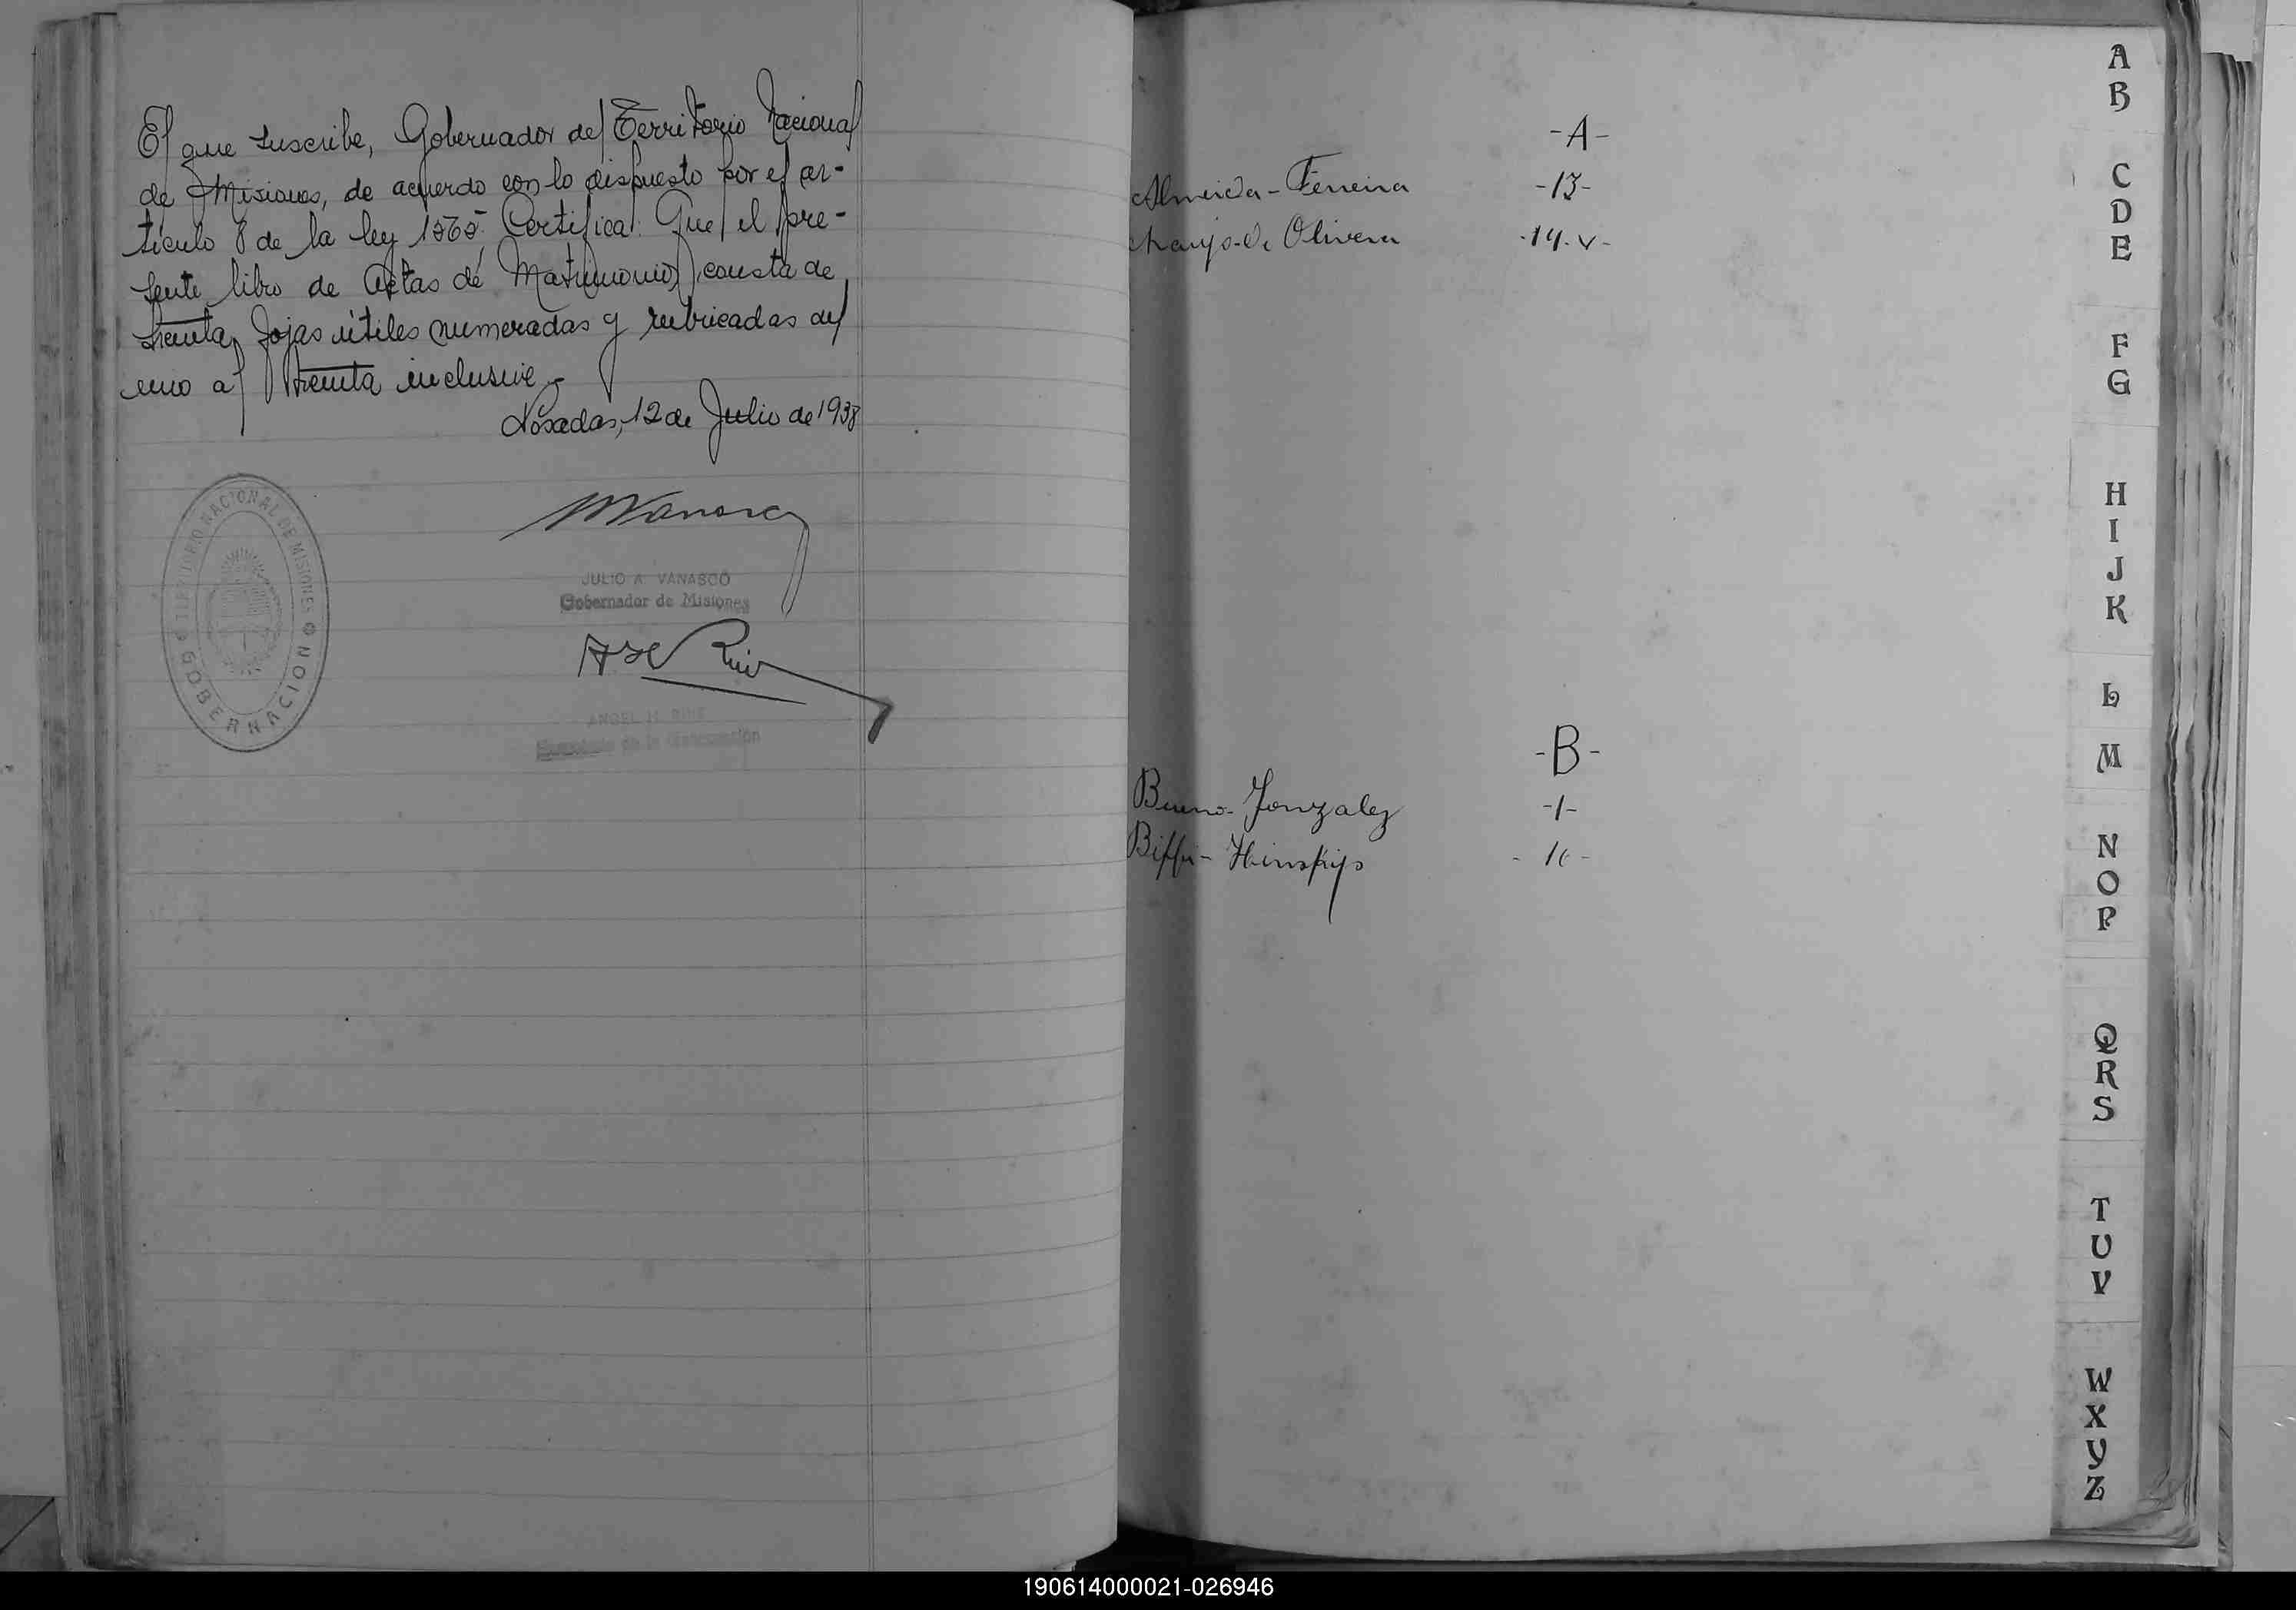 El que suscribe, Gobernador del Territorio Nacional
de Misiones, de acuerdo con lo dispuesto por el ar-
tículo 8 de la ley 1565. Certifica: Que el pre-
sente libro de Actas de Matrimonios, consta de
treinta fojas útiles numeradas y rubricadas del
uno al treinta inclusive.-
Posadas, 12 de Julio de 1938
JULIO A. VANASCO
Gobernador de Misiones
ANGEL H. RUIZ
de la Gobernación
TERRITORIO NACIONAL DE MISIONES
GOBERNACION
-A-
Almeida - Ferreira -13-
de Olivera -14-v-
-B-
Bueno - Gonzalez -1-
- 16 -
A
B
C
D
E
F
G
H
I
J
K
L
M
N
O
P
Q
R
S
T
U
V
W
X
Y
Z
190614000021-026946